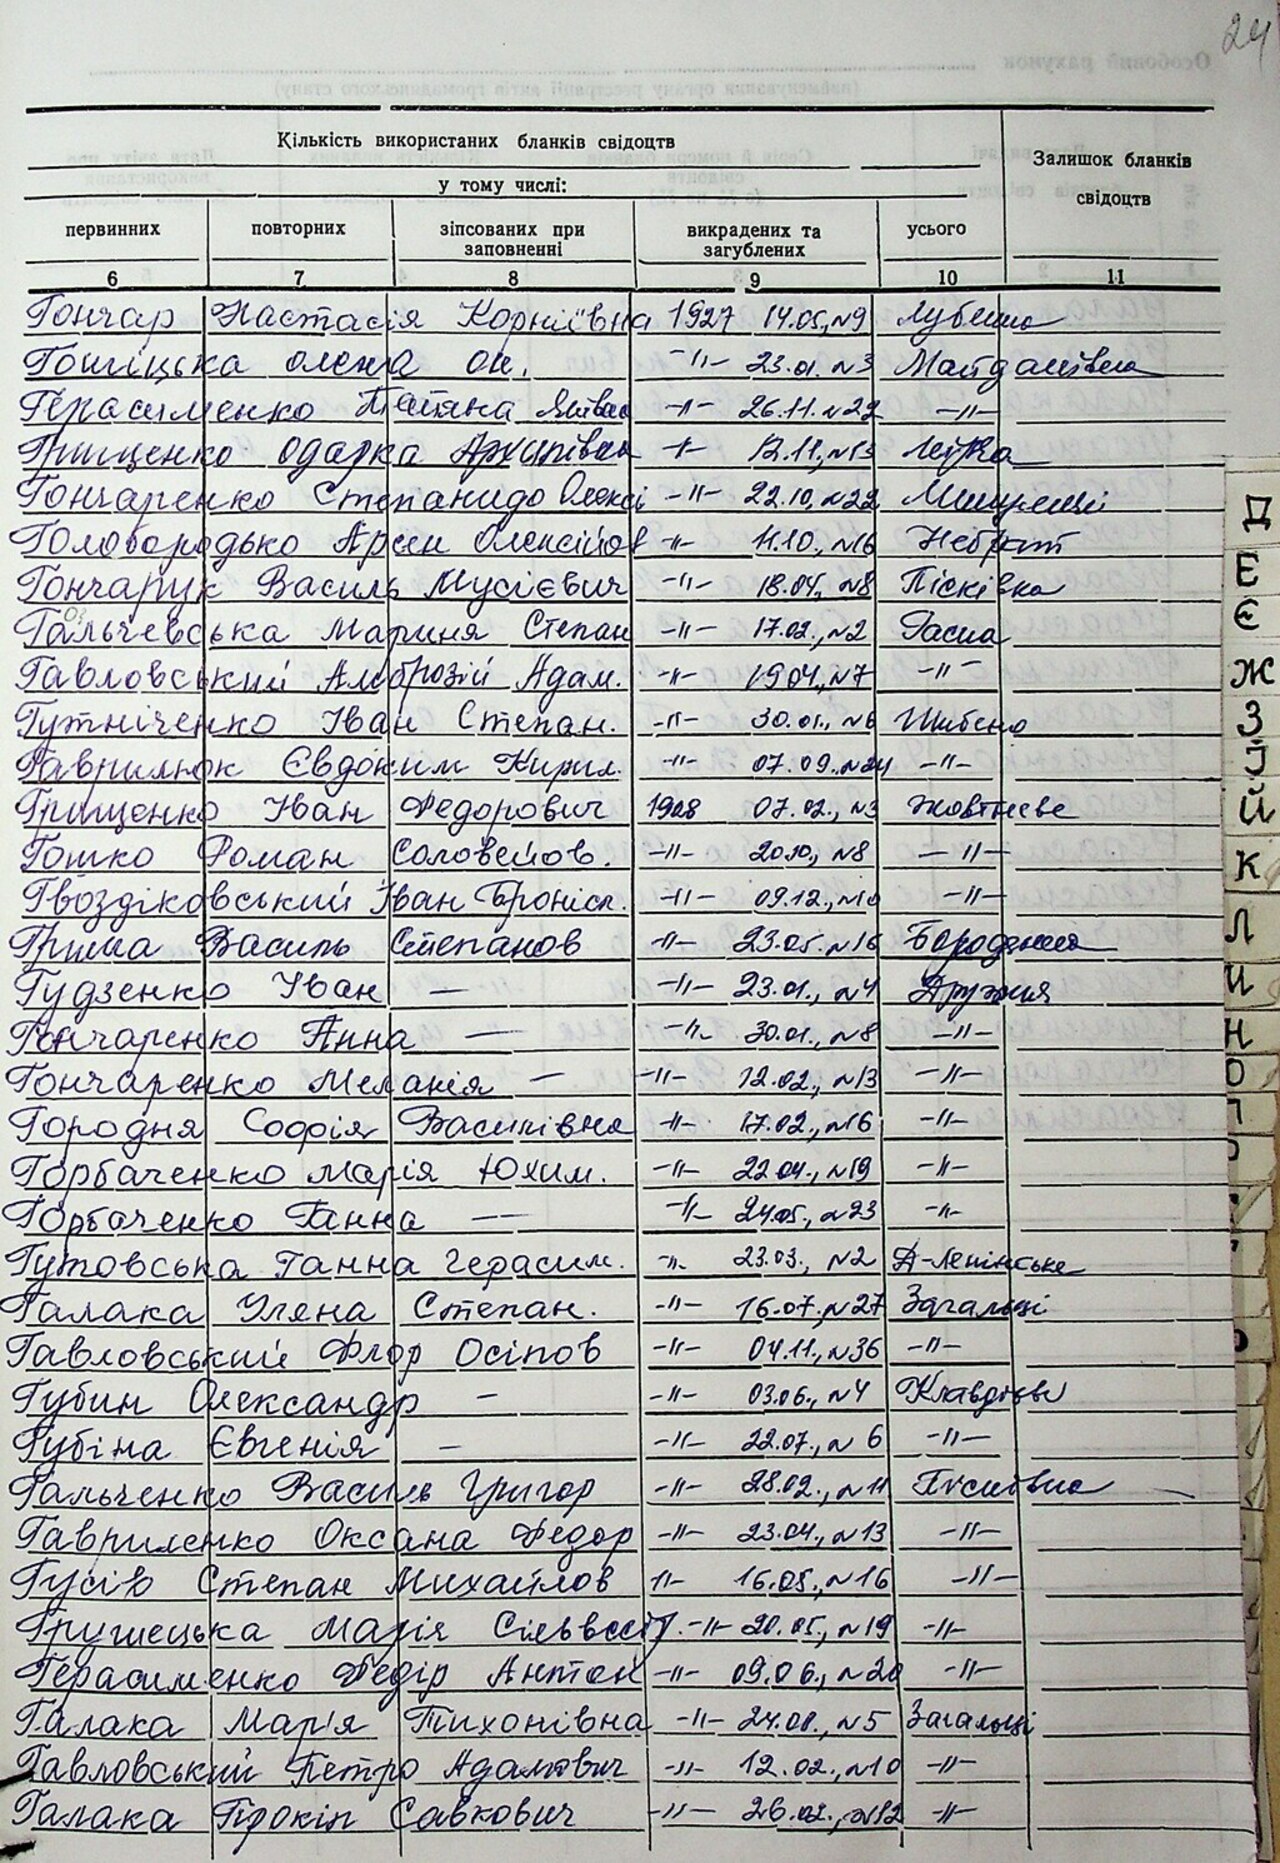 24
Кількість використаних бланків свідоцтв
Залишок бланків свідоцтв
у тому числі:
первинних повторних зіпсованих при заповненні викрадених та загублених усього
6 7 8 9 10 11
Гончар Настасія Корніївна 1927 14.05., №9 Лубянка
Гошіцька Олена Он. -"- 23.01. №3 Майданівка
Герасименко Тетяна -"- 26.11. №22 -"-
Грищенко Одарка Архипівна -"- 12.11., №13
Гончаренко Степанида Олексі -"- 22.10, №22 Микуличі
Головородько Арсен Олексійов -"- 11.10., №16 Небрат
Гончарук Василь Мусієвич -"- 18.04., №8 Пісківка
Гальчевська Мариня Степан -"- 17.02., №2 Расна
Гавловський Амброзій Адам. -"- 19.04., №7 -"-
Гутніченко Іван Степан. -"- 30.01., №6 Шибено
Гаврилюк Євдоким Кирил. -"- 07.09. №24 -"-
Грищенко Іван Федорович 1928 07.02., №3 Жовтнєве
Гошко Роман Соловейов. -"- 20.10., №8 -"-
Гвоздіковський Іван Бронісл. -"- 09.12., №10 -"-
Гриша Василь Степанов -"- 23.05. №16 Бородянка
Гудзенко Іван — -"- 23.01., №4 Дружня
Гончаренко Анна — -"- 30.01., №8 -"-
Гончаренко Меланія — -"- 12.02., №13 -"-
Городня Софія Василівна -"- 17.02., №16 -"-
Горбаченко Марія Юхим. -"- 22.04., №19 -"-
Горбаченко Ганна — -"- 24.05., №23 -"-
Гутовська Ганна Герасим. -"- 23.03., №2 Д-Ленінське
Галака Уляна Степан. -"- 16.07., №27 Загальці
Гавловський Флор Осіпов -"- 04.11., №36 -"-
Губин Олександр — -"- 03.06., №4 Клавдієве
Губіна Євгенія — -"- 22.07., №6 -"-
Гальченко Василь Григор -"- 28.02., №11 Пісківка
Гавриленко Оксана Федор -"- 23.04., №13 -"-
Гусів Степан Михайлов -"- 16.05., №16 -"-
Грушецька Марія Сільвестр. -"- 20.05., №19 -"-
Герасименко Федір Антон -"- 09.06., №20 -"-
Галака Марія Тихонівна -"- 24.01., №5 Загальці
Гавловський Петро Адамович -"- 12.02., №10 -"-
Галака Прокіп Савкович -"- 26.02., №12 -"-
Д
Е
Є
Ж
З
І
Й
К
Л
М
Н
О
П